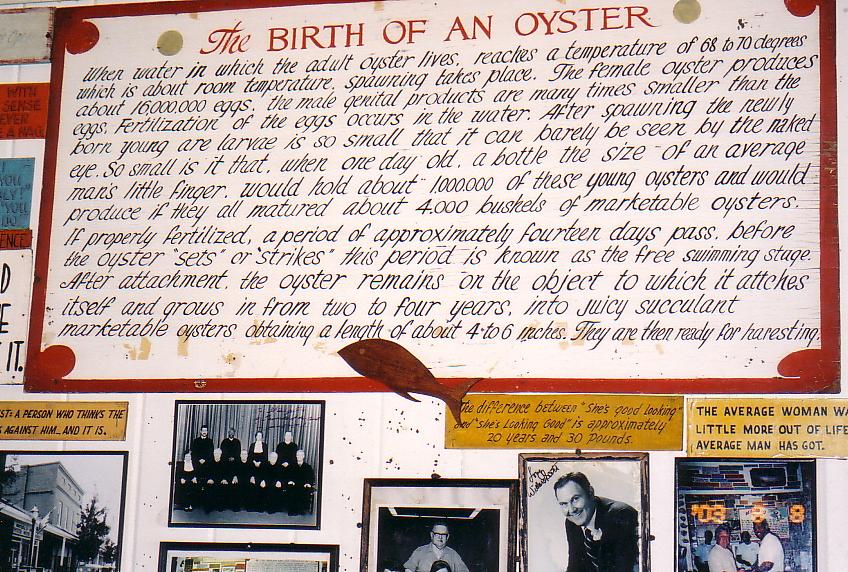 The BIRTH OF AN OYSTER
When water in which the adult oyster lives, reaches a temperature of 68 to 70 degrees
which is about room temperature, spawning takes place. The female oyster produces
about 16,000,000 eggs, the male genital products are many times smaller than the
eggs. Fertilization of the eggs occurs in the water. After spawning the newly
born young are larvae is so small that it can barely be seen by the naked
eye. So small is it that, when one day old, a bottle the size of an average
man's little finger, would hold about 1000000 of these young oysters and would
produce if they all matured about 4,000 bushels of marketable oysters.
If properly fertilized, a period of approximately fourteen days pass, before
the oyster "sets" or "strikes" this period is known as the free swimming stage.
After attachment, the oyster remains on the object to which it attches
itself and grows in from two to four years, into juicy succulant
marketable oysters obtaining a length of about 4 to 6 inches. They are then ready for haresting.
WITH
SENSE
EVER
E A NAG.
YOU
"YOU
ENCE
D
E
IT.
ST: A PERSON WHO THINKS THE
AGAINST HIM... AND IT IS.
The difference between "She's good looking"
and "She's Looking Good" is approximately
20 years and 30 pounds.
THE AVERAGE WOMAN WA
LITTLE MORE OUT OF LIFE
AVERAGE MAN HAS GOT.
'03 8 8